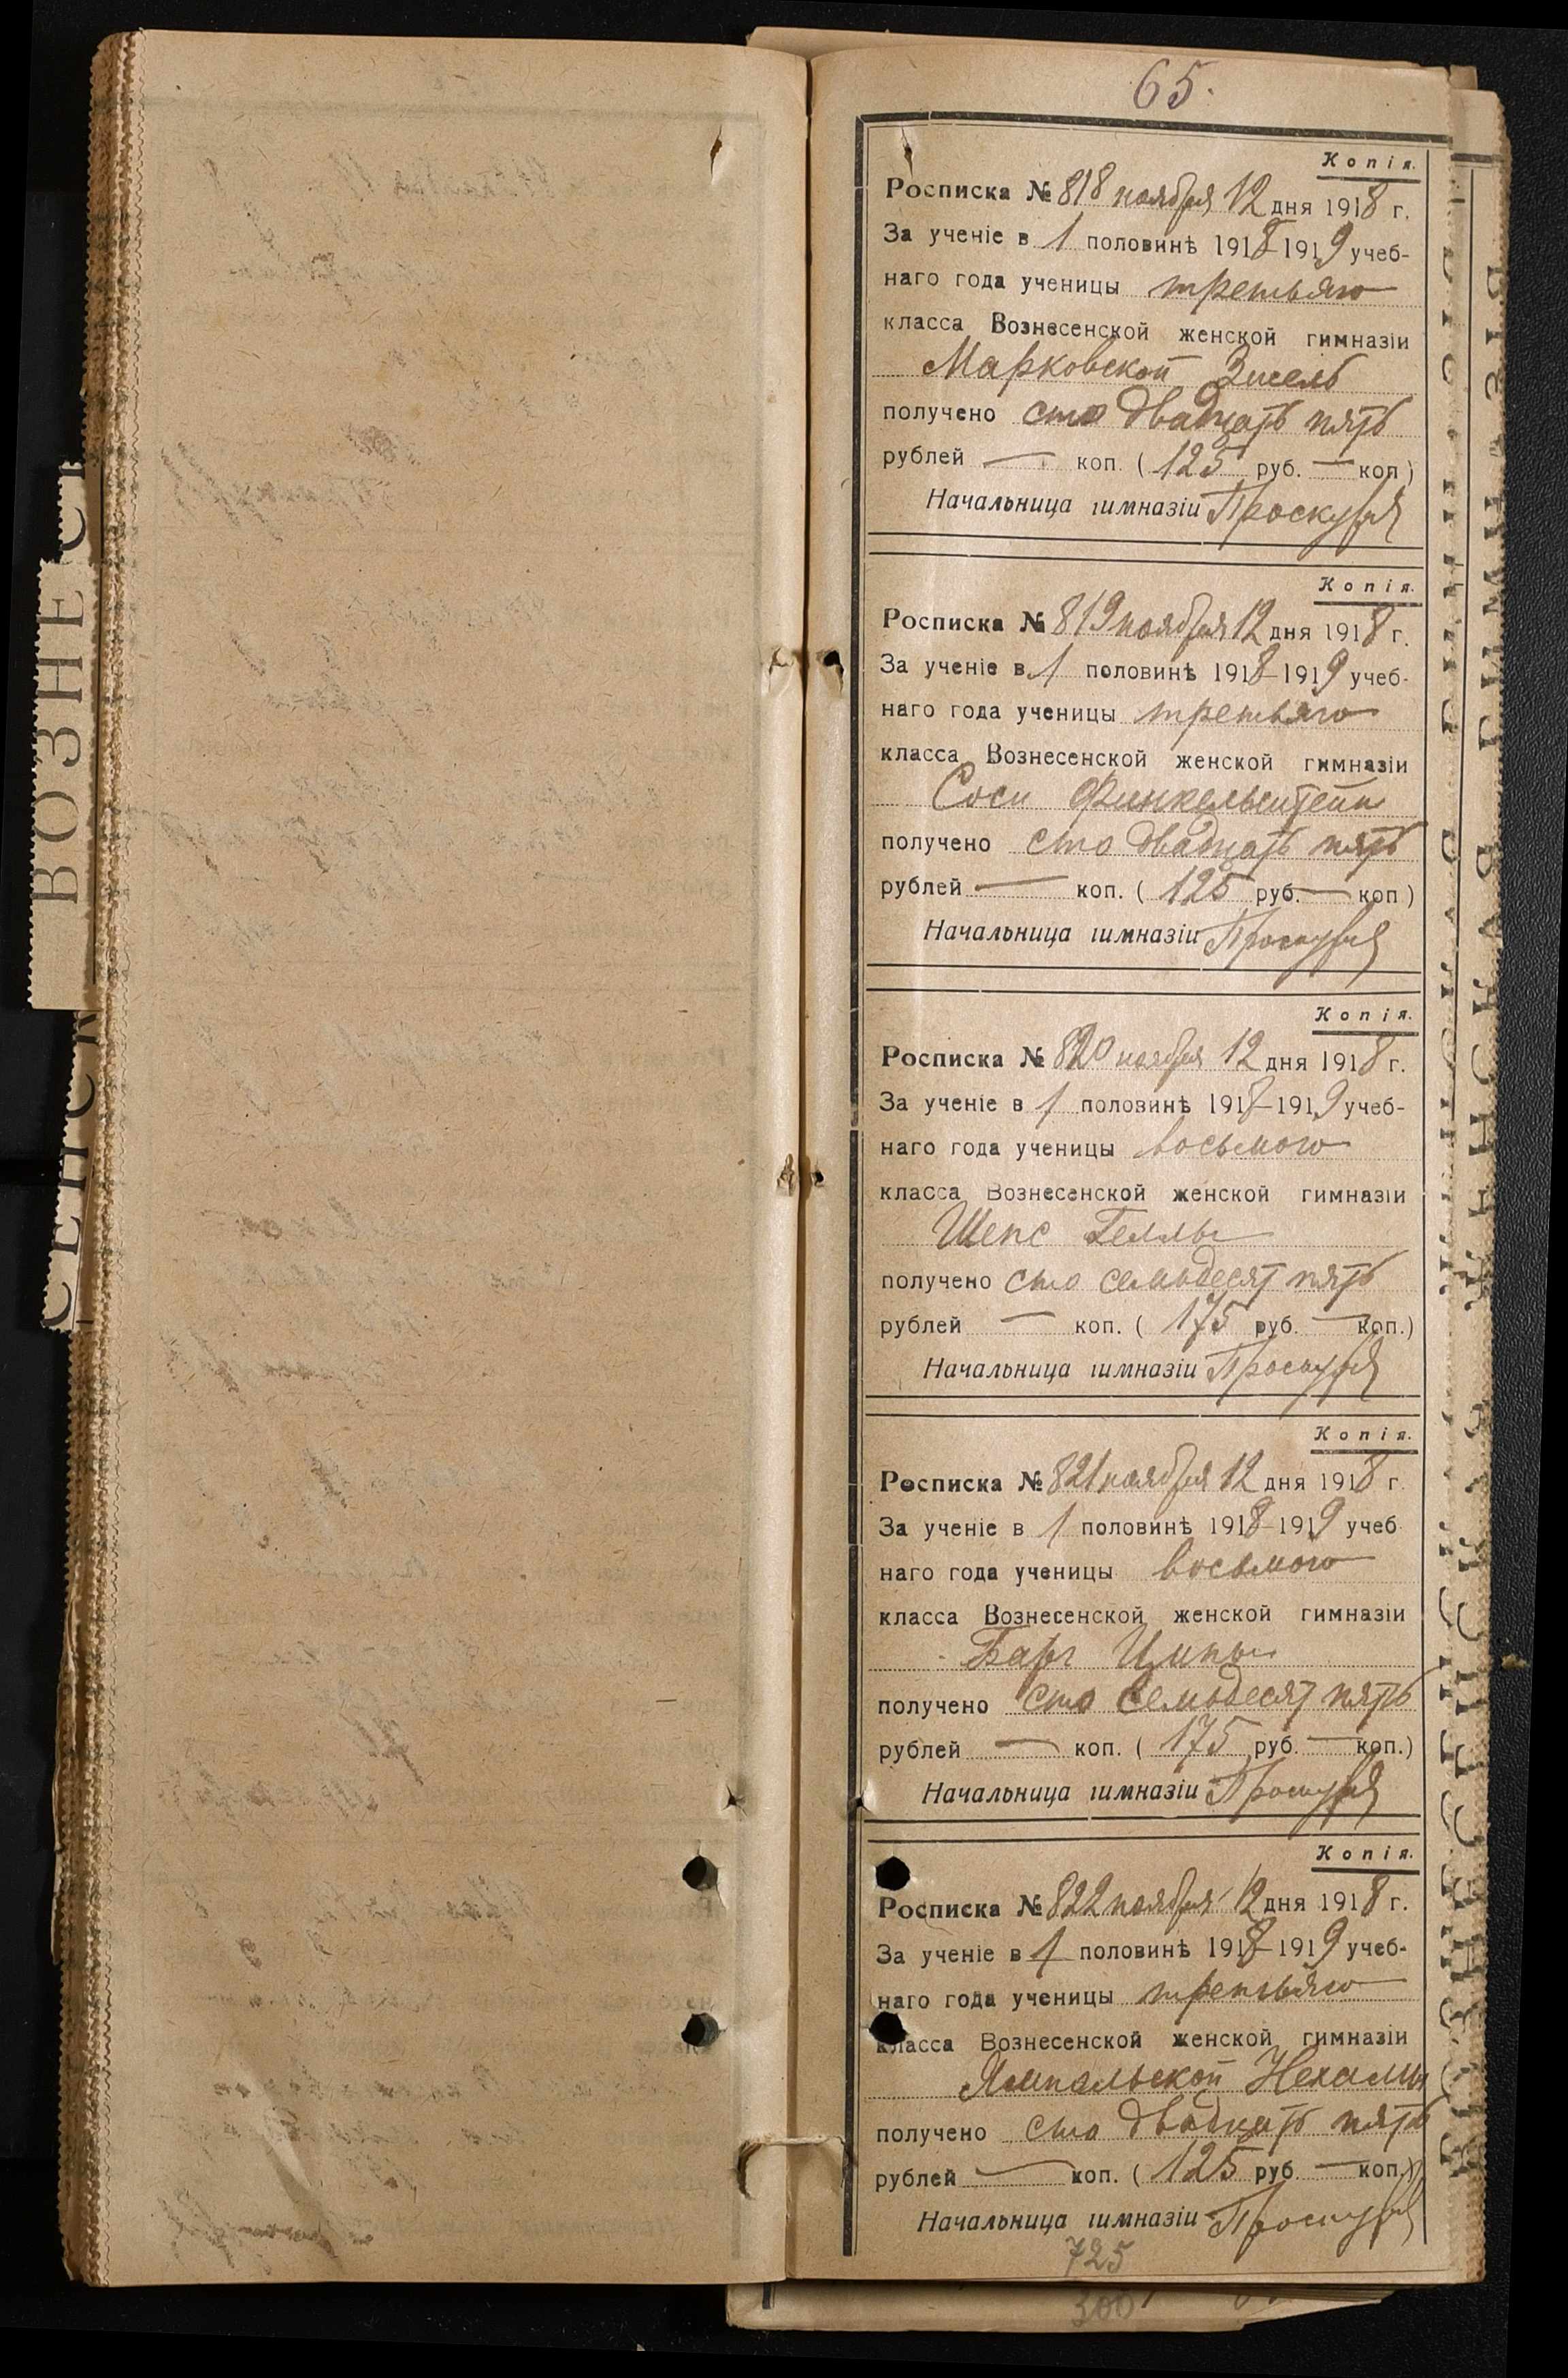 65.
Копія.
Росписка № 818 ноября 12 дня 1918 г.
За ученіе в 1 половинѣ 1918-1919 учеб-
наго года ученицы третьяго
класса Вознесенской женской гимназіи
Марковской Зисель
получено сто двадцать пять
рублей — коп. ( 125 руб. — коп )
Начальница гимназіи
Копія.
Росписка № 819 ноября 12 дня 1918 г.
За ученіе в 1 половинѣ 1918-1919 учеб-
наго года ученицы третьяго
класса Вознесенской женской гимназіи
Соси Финкельштейн
получено сто двадцать пять
рублей — коп. ( 125 руб. — коп )
Начальница гимназіи
Копія.
Росписка № 820 ноября 12 дня 1918 г.
За ученіе в 1 половинѣ 1918-1919 учеб-
наго года ученицы восьмого
класса Вознесенской женской гимназіи
Шепс Геллы
получено сто семьдесят пять
рублей — коп. ( 175 руб. — коп.)
Начальница гимназіи
Копія.
Росписка № 821 ноября 12 дня 1918 г.
За ученіе в 1 половинѣ 1918-1919 учеб
наго года ученицы восьмого
класса Вознесенской женской гимназіи
Барг Ципы
получено сто семьдесят пять
рублей — коп. ( 175 руб. — коп.)
Начальница гимназіи
Копія.
Росписка № 822 ноября 12 дня 1918 г.
За ученіе в 1 половинѣ 1918-1919 учеб-
наго года ученицы третьяго
класса Вознесенской женской гимназіи
Ямпальской Нехамы
получено сто двадцать пять
рублей — коп. ( 125 руб. — коп.)
Начальница гимназіи
725
300
ВОЗНЕС